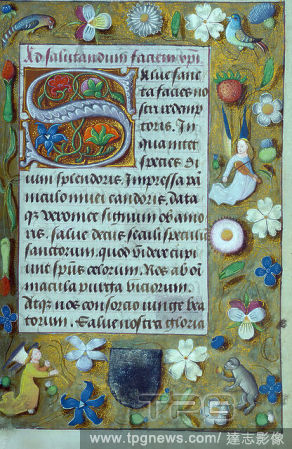 Ad salutandum faciem xpi
Salue sanc
ta facies no
stri redemp
toris. In
qua nitet
species di
uini splendoris. Impressa pan
niculo niuei candoris. data
q3 veronice signum ob amo
ris. Salue decus seculi speculū
sanctorum. quod videre cupi
unt spūs celorum. Nos ab om̄i
macula purga viciorum.
Atq3 nos consorcio iunge bea
torum. Salue nostra gloria
TPG
www.tpgnews.com / 達志影像